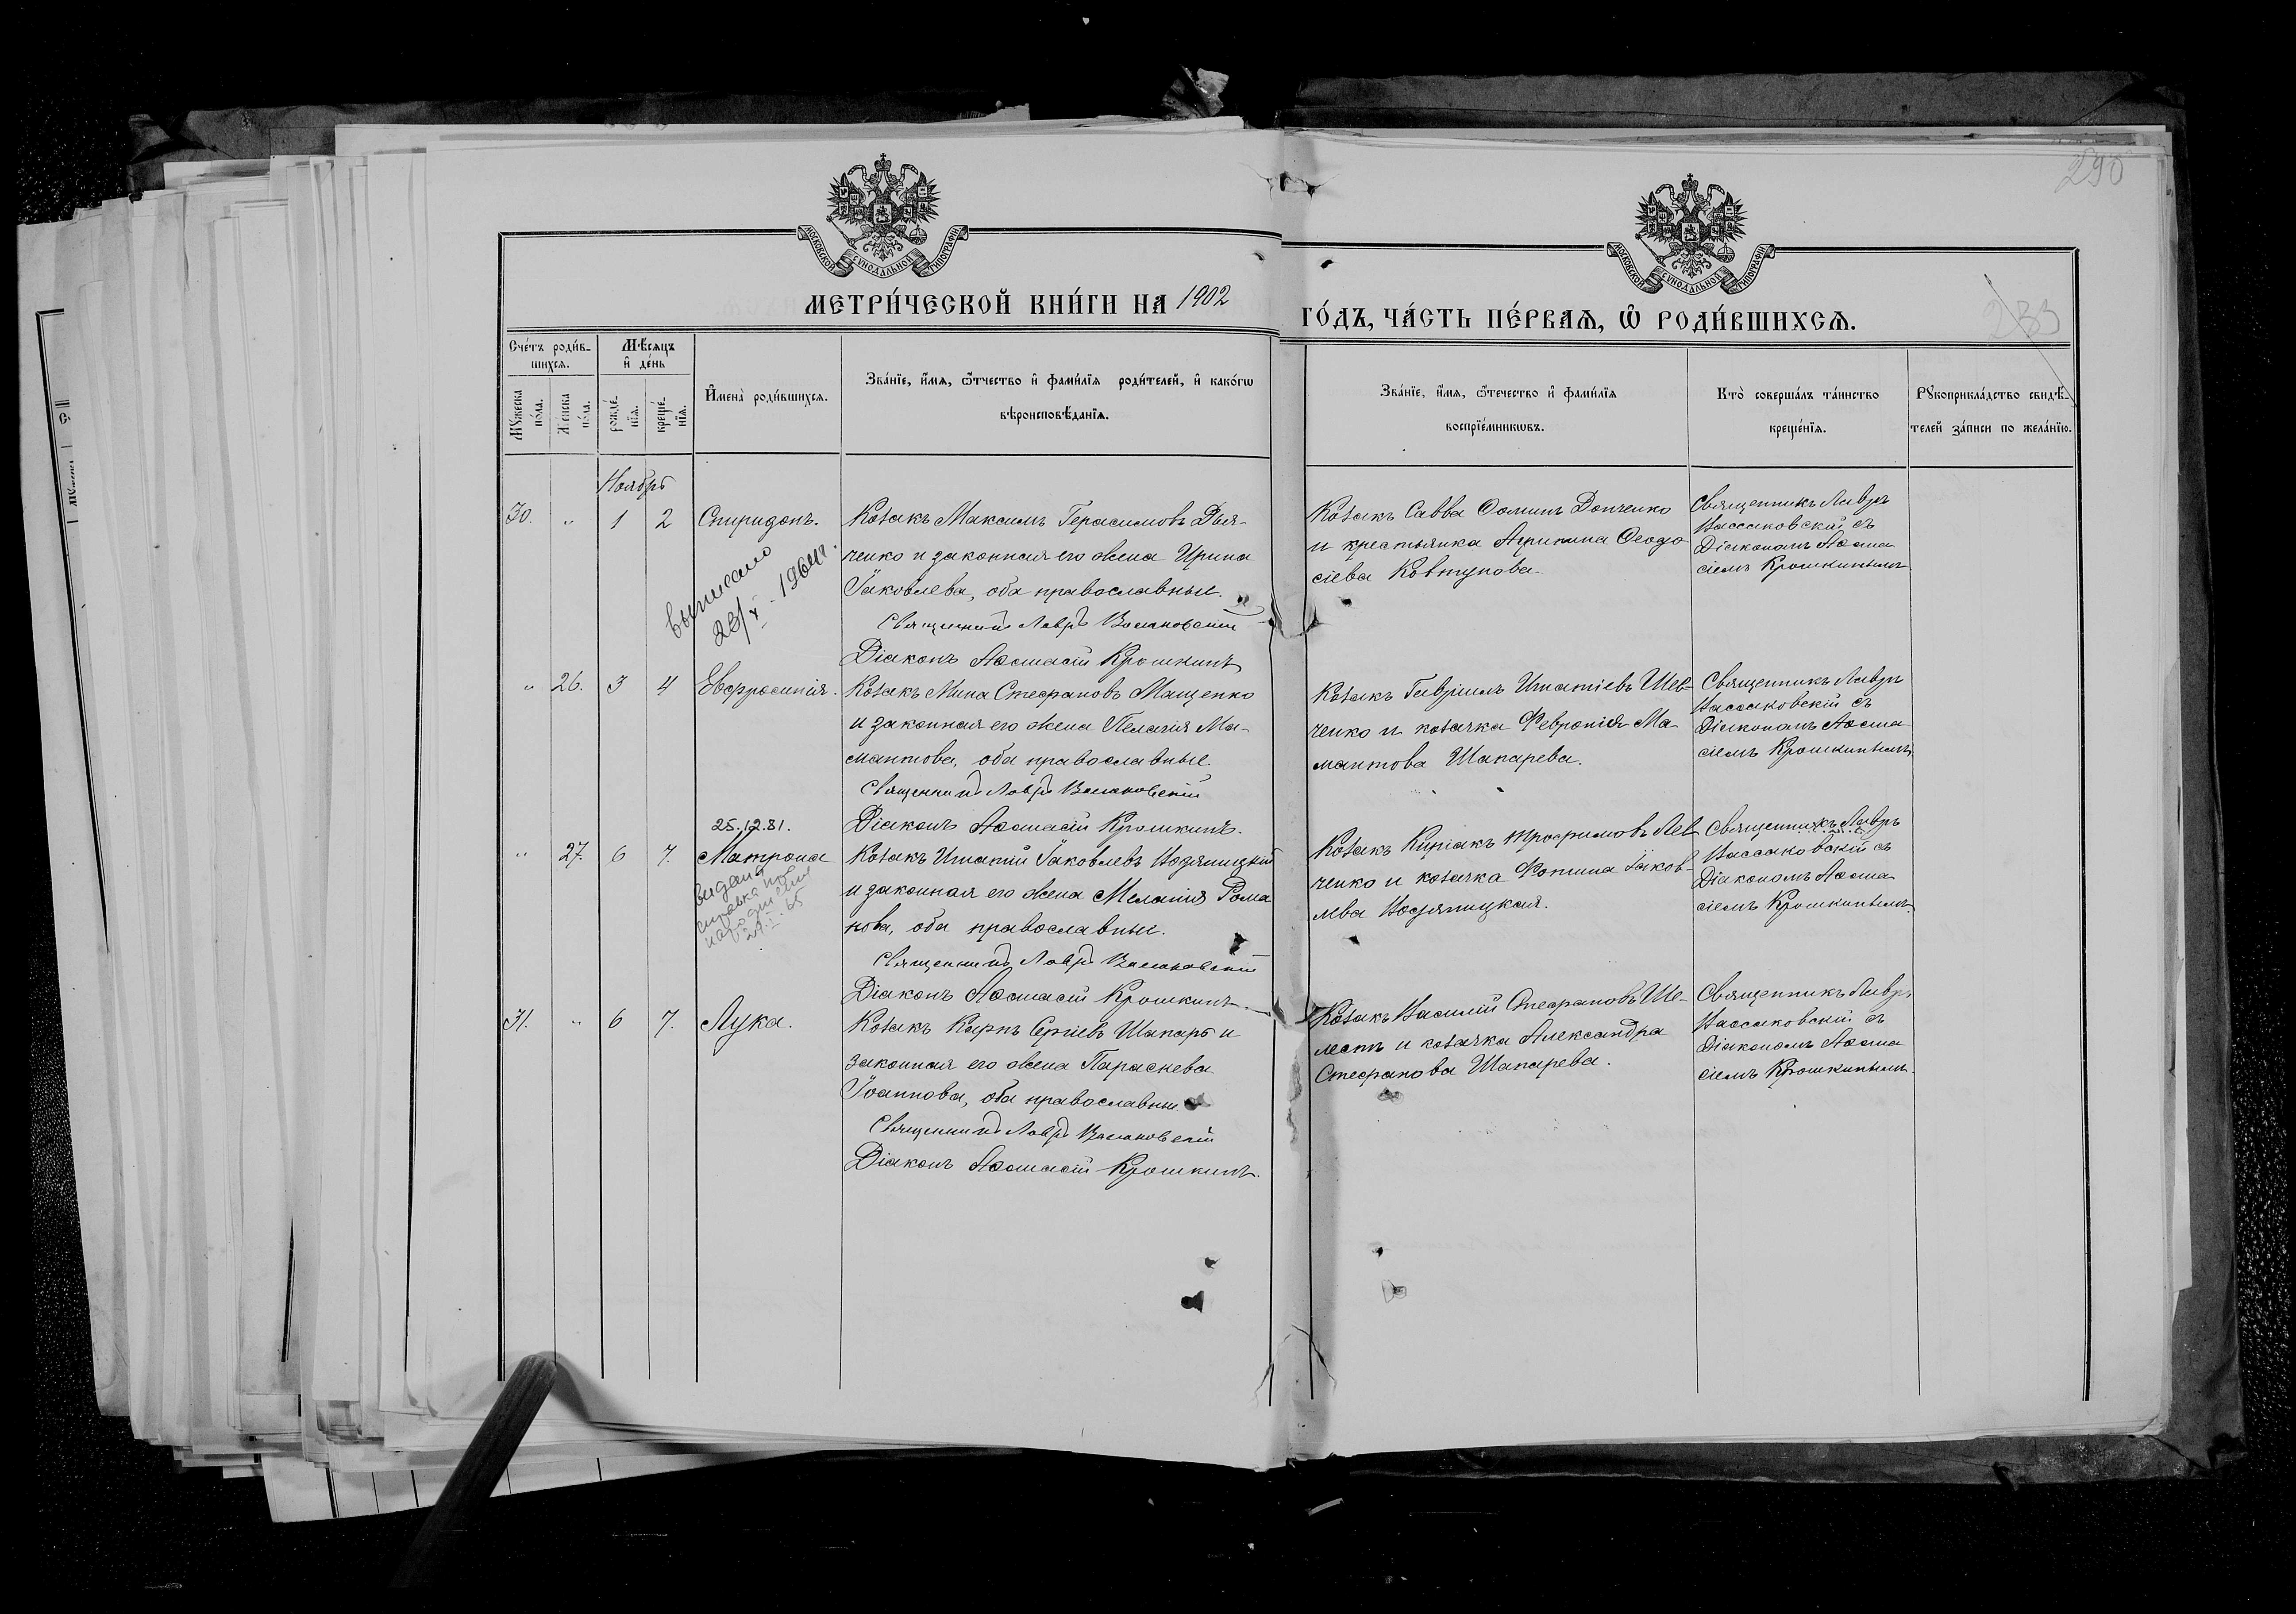 290
233
МОСКОВСКОЙ СѴНОДАЛЬНОЙ ТИПОГРАФІИ
МОСКОВСКОЙ СѴНОДАЛЬНОЙ ТИПОГРАФІИ
МЕТРИ́ЧЕСКОЙ КНИ́ГИ НА 1902
ГО́ДЪ, ЧА́СТЬ ПЕ́РВАѦ, Ѽ РОДИ́ВШИХСѦ.
Сче́тъ роди́в-
шихсѧ.
Мѣ́сяцъ
и҆ де́нь
Мꙋ́жеска
по́ла.
Же́нска
по́ла.
рожде́-
нїѧ.
креще́-
нїѧ.
И҆мена̀ роди́вшихсѧ.
Зва́нїе, и҆́мѧ, ѻ҆́тчество и҆ фами́лїѧ роди́телей, и҆ како́гѡ
вѣроисповѣ́данїѧ.
Зва́нїе, и҆́мѧ, ѻ҆те́чество и҆ фами́лїѧ
воспрїе́мникѡвъ.
Кто̀ соверша́лъ та́инство
креще́нїѧ.
Рꙋкоприкла́дство свидѣ́-
телей за́писи по жела́нїю.
Ноябрь
30. „ 1 2 Спиридонъ.
Козакъ Максимъ Герасимовъ Дья-
ченко и законная его жена Ирина
Іаковлева, оба православные.
Священникъ Лавръ Вассаковскій
Діаконъ Аѳанасій Крошкинъ
выписано
26/X - 1964г.
Козакъ Савва Ѳоминъ Донченко
и крестьянка Агрипина Ѳеодо
сіева Ковтунова.
Священникъ Лавръ
Вассаковскій съ
Діакономъ Аѳана
сіемъ Крошкинымъ
„ 26. 3 4 Евфросинія.
Козакъ Мина Стефановъ Мащенко
и законная его жена Пелагія Ма-
мантова, оба православные.
Священникъ Лавръ Вассаковскій
Діаконъ Аѳанасій Крошкинъ.
Козакъ Гавріилъ Игнатіевъ Шев-
ченко и козачка Февронія Ма-
мантова Шапарева.
Священникъ Лавръ
Вассаковскій съ
Діакономъ Аѳана
сіемъ Крошкинымъ
25.12.81.
„ 27. 6 7. Матрона
видана
справка про
народження
27.I.65
Козакъ Игнатій Іаковлевъ Водяницкій
и законная его жена Меланія Рома
нова, оба православные.
Священникъ Лавръ Вассаковскій
Діаконъ Аѳанасій Крошкинъ.
Козакъ Киріакъ Трофимовъ Лев
ченко и козачка Фотина Іаков-
лева Водяницкая.
Священникъ Лавръ
Вассаковскій съ
Діакономъ Аѳана
сіемъ Крошкинымъ.
31. „ 6 7. Лука.
Козакъ Карпъ Сергіевъ Шапарь и
законная его жена Параскева
Іоаннова, оба православные
Священникъ Лавръ Вассаковскій
Діаконъ Аѳанасій Крошкинъ.
Козакъ Василій Стефановъ Ше-
лестъ и козачка Александра
Стефанова Шапарева.
Священникъ Лавръ
Вассаковскій съ
Діакономъ Аѳана
сіемъ Крошкинымъ.